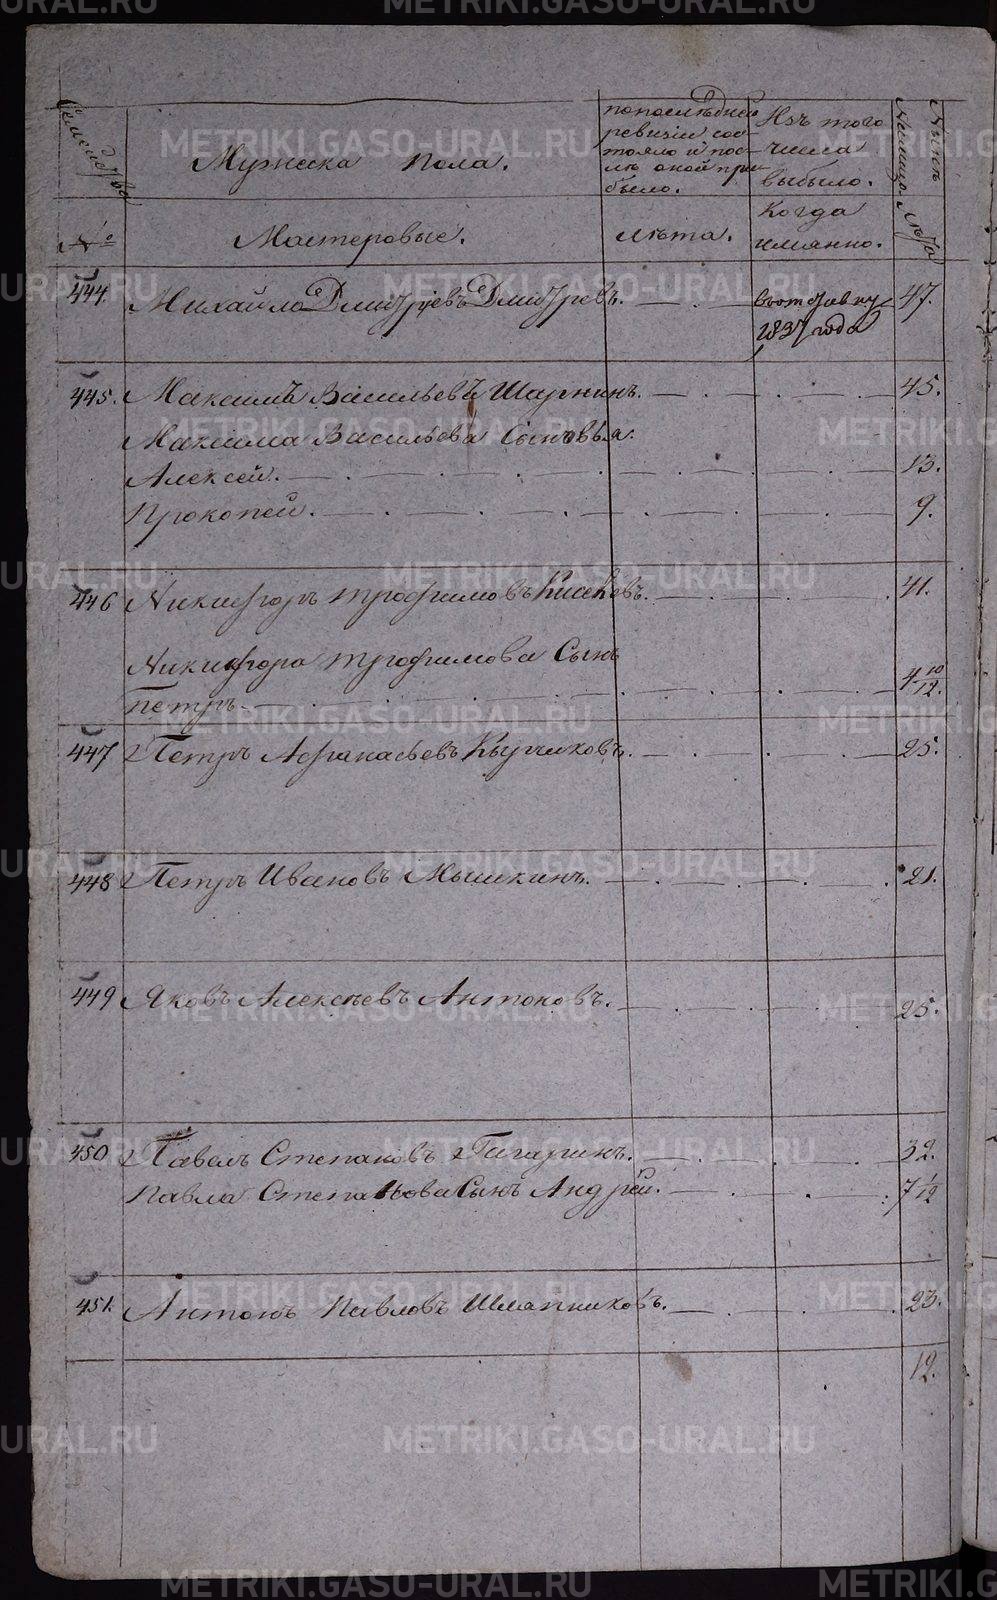 METRIKI.GASO-URAL.RU
Семейства
Мужеска пола.
попоследней
ревизии сос-
тояло и пос-
ле оной при
было.
Изъ того
числа
выбыло.
Ныне
налицо.
№
Мастеровые.
лета.
Когда
имянно.
Лета
444. Михайла Дмитриевъ Дмитревъ. 47.
вотставку
1837 года
445. Максимъ Васильевъ Шаркинъ. 45.
Максима Васильева Сыновья.
Алексей. 13.
Прокопей. 9.
446 Никифоръ трофимовъ 41.
Никифора трофимова Сынъ
петръ 4 10/12.
447 Петръ Афанасьевъ Кырчиковъ. 25.
448 Петръ Ивановъ Мышкинъ. 21.
449 Яковъ Алексеевъ Антоновъ. 25.
450 Павелъ Степановъ Гагаринъ. 32.
Павла Степанова Сынъ Андрей. 7 1/12
451. Антонъ Павловъ Шляпниковъ. 23.
12.